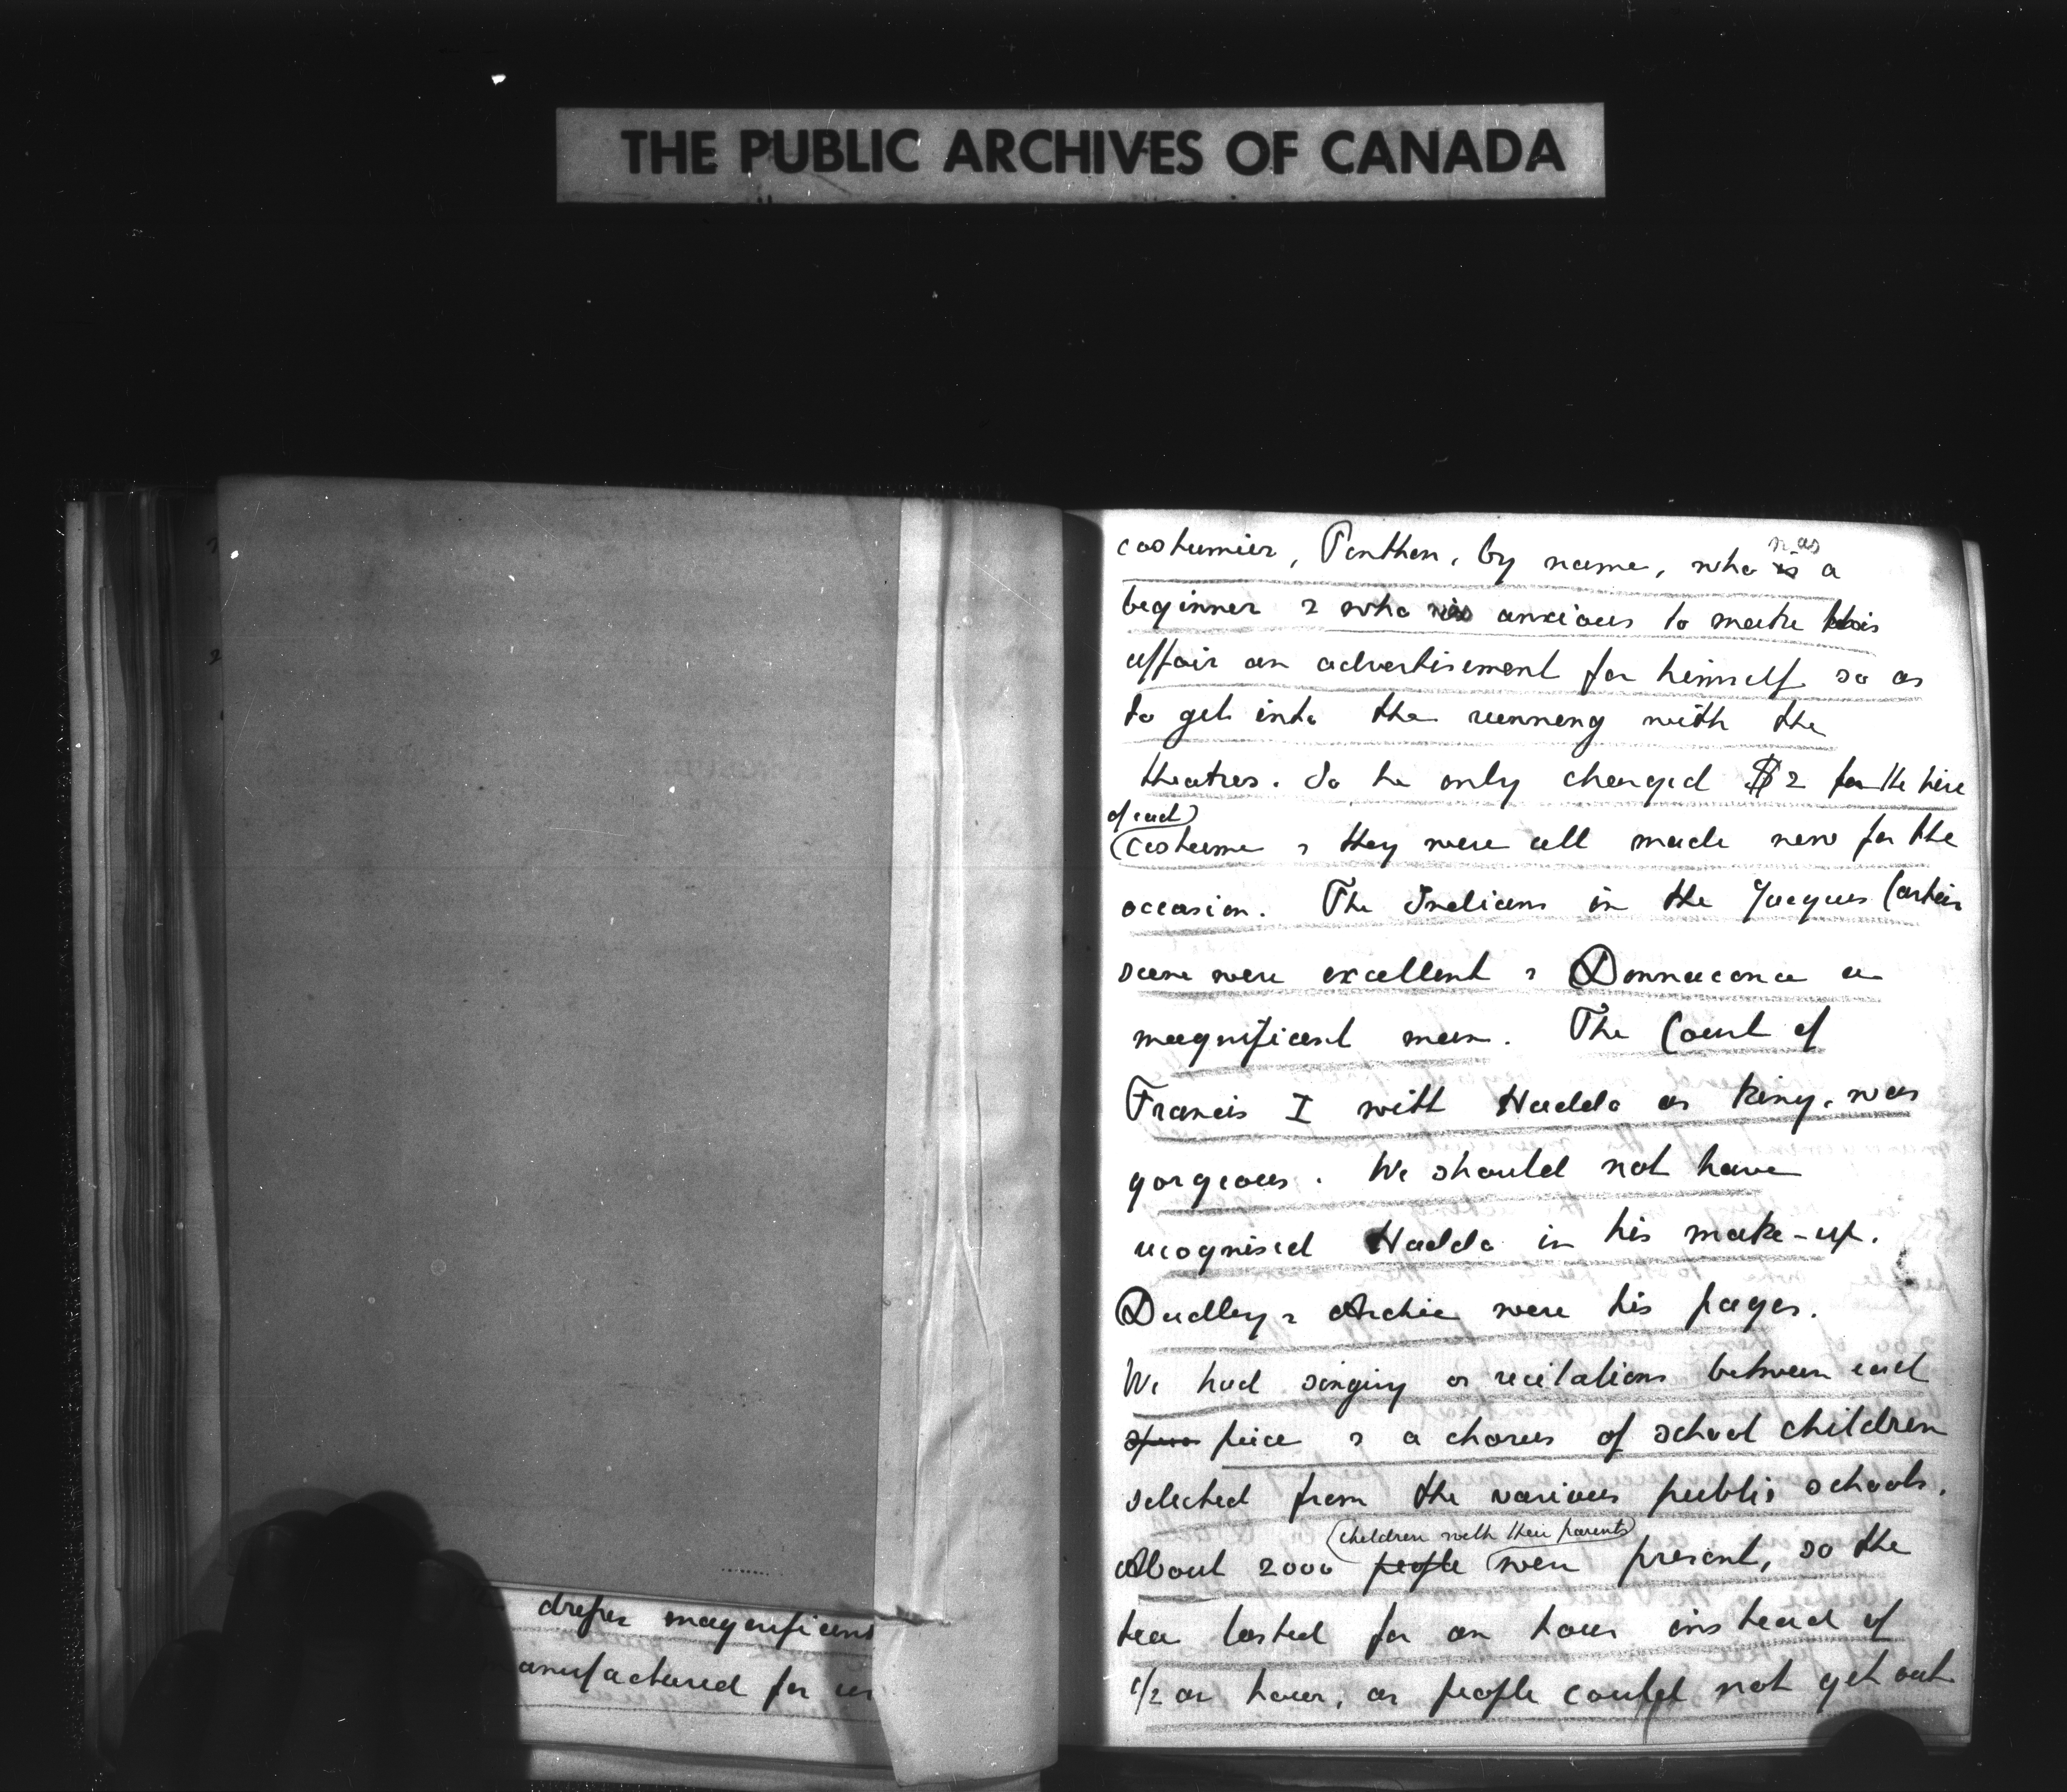 THE PUBLIC ARCHIVES OF CANADA
dresses magnificent
manufactured for us
costumier, Ponthon, by name, who was a
beginner & who was anxious to make this
affair an advertisement for himself so as
to get into the running with the
theatres. So he only charged $2 for the hire
of each
costume & they were all made new for the
occasion. The Indians in the Jacques Cartier
scene were excellent & Donnacona a
magnificent man. The Court of
Francis I with Haddo as King, was
gorgeous. We should not have
recognised Haddo in his make-up.
Dudley & Archie were his pages.
We had singing or recitations between each
piece & a chorus of school children
selected from the various public schools.
children with their parents
About 2000 people were present, so the
tea lasted for an hour instead of
1/2 an hour, as people could not get out